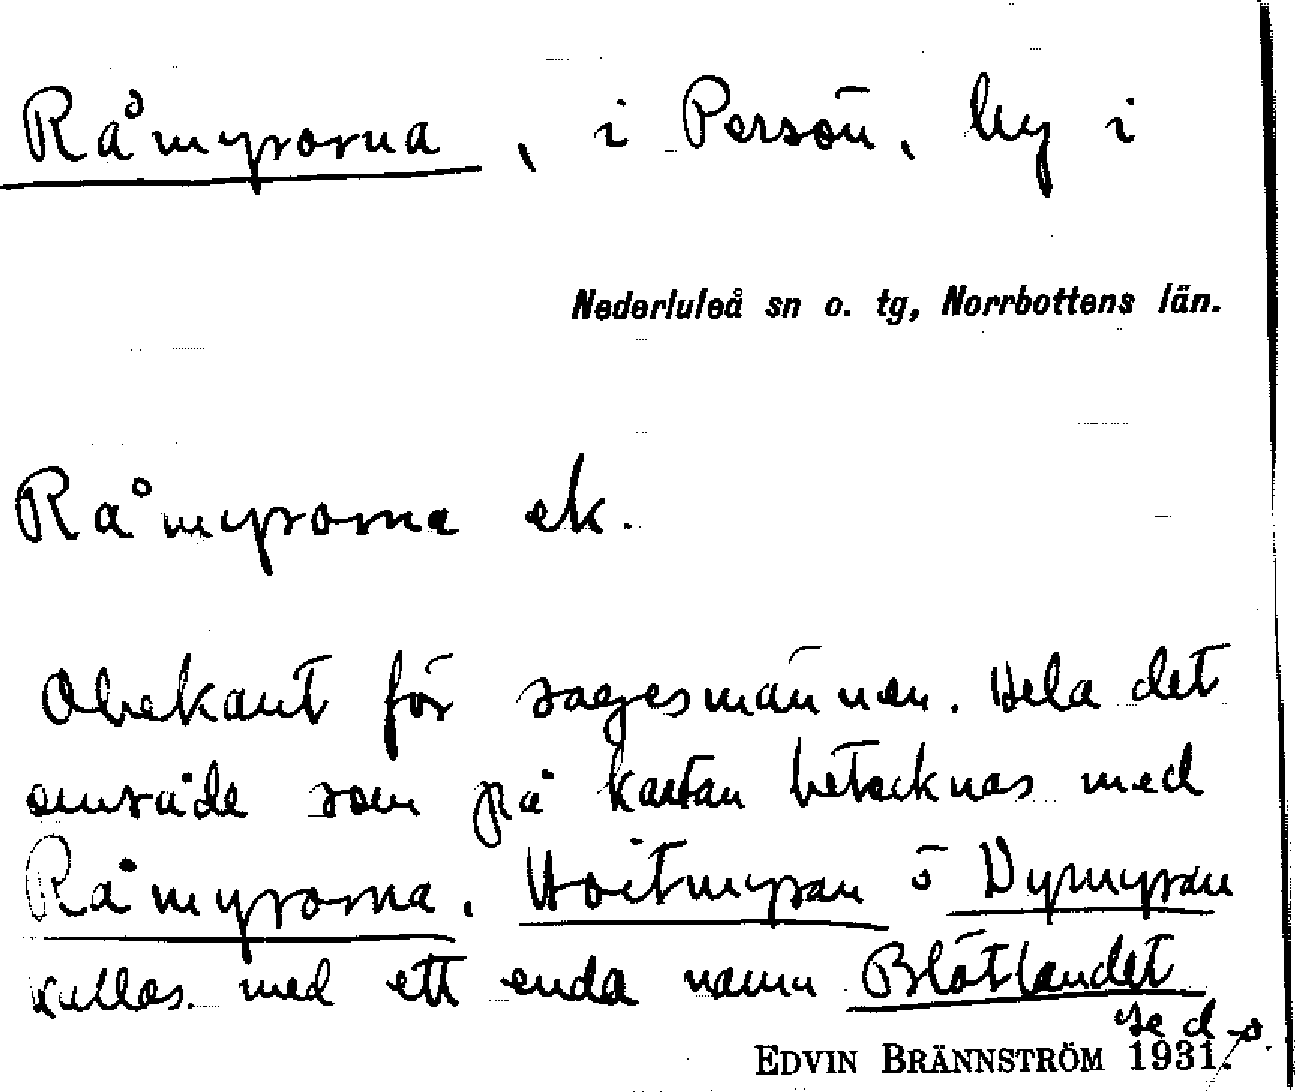 Råmyrorna, i Persön, by i
Nederluleå sn o. tg, Norrbottens län.
Råmyrorna ek.
Obekant för sagesmännen. Hela det
område som på kartan betecknas med
Råmyrorna, Hvitmyran o Dymyran
kallas med ett enda namn Blötlandet
se d. o.
EDVIN BRÄNNSTRÖM 1931.